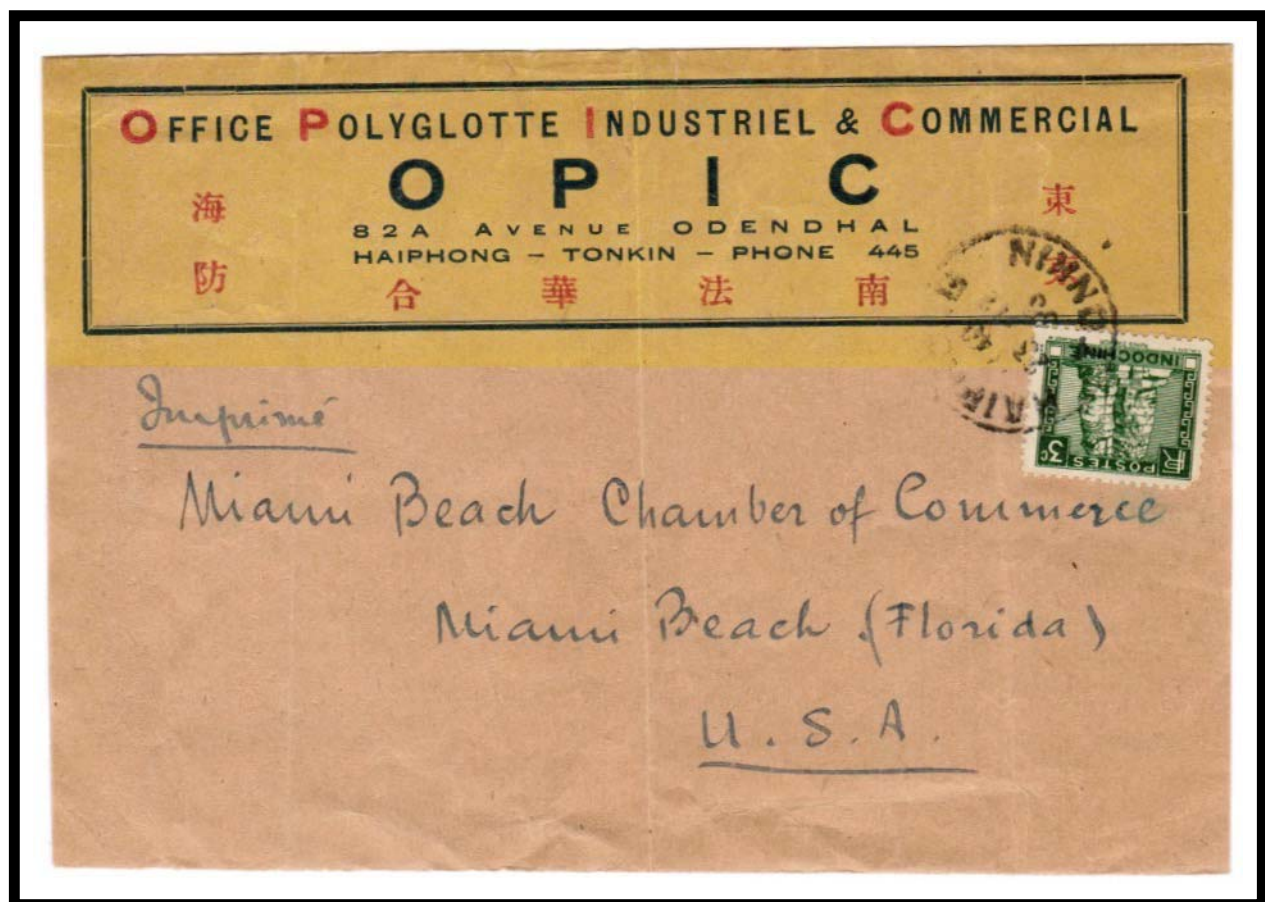 OFFICE POLYGLOTTE INDUSTRIEL & COMMERCIAL
OPIC
海防
東
82A AVENUE ODENDHAL
HAIPHONG – TONKIN – PHONE 445
合華法南
TONKIN
INDOCHINE
POSTES
3c
RF
Imprimé
Miami Beach Chamber of Commerce
Miami Beach (Florida)
U.S.A.